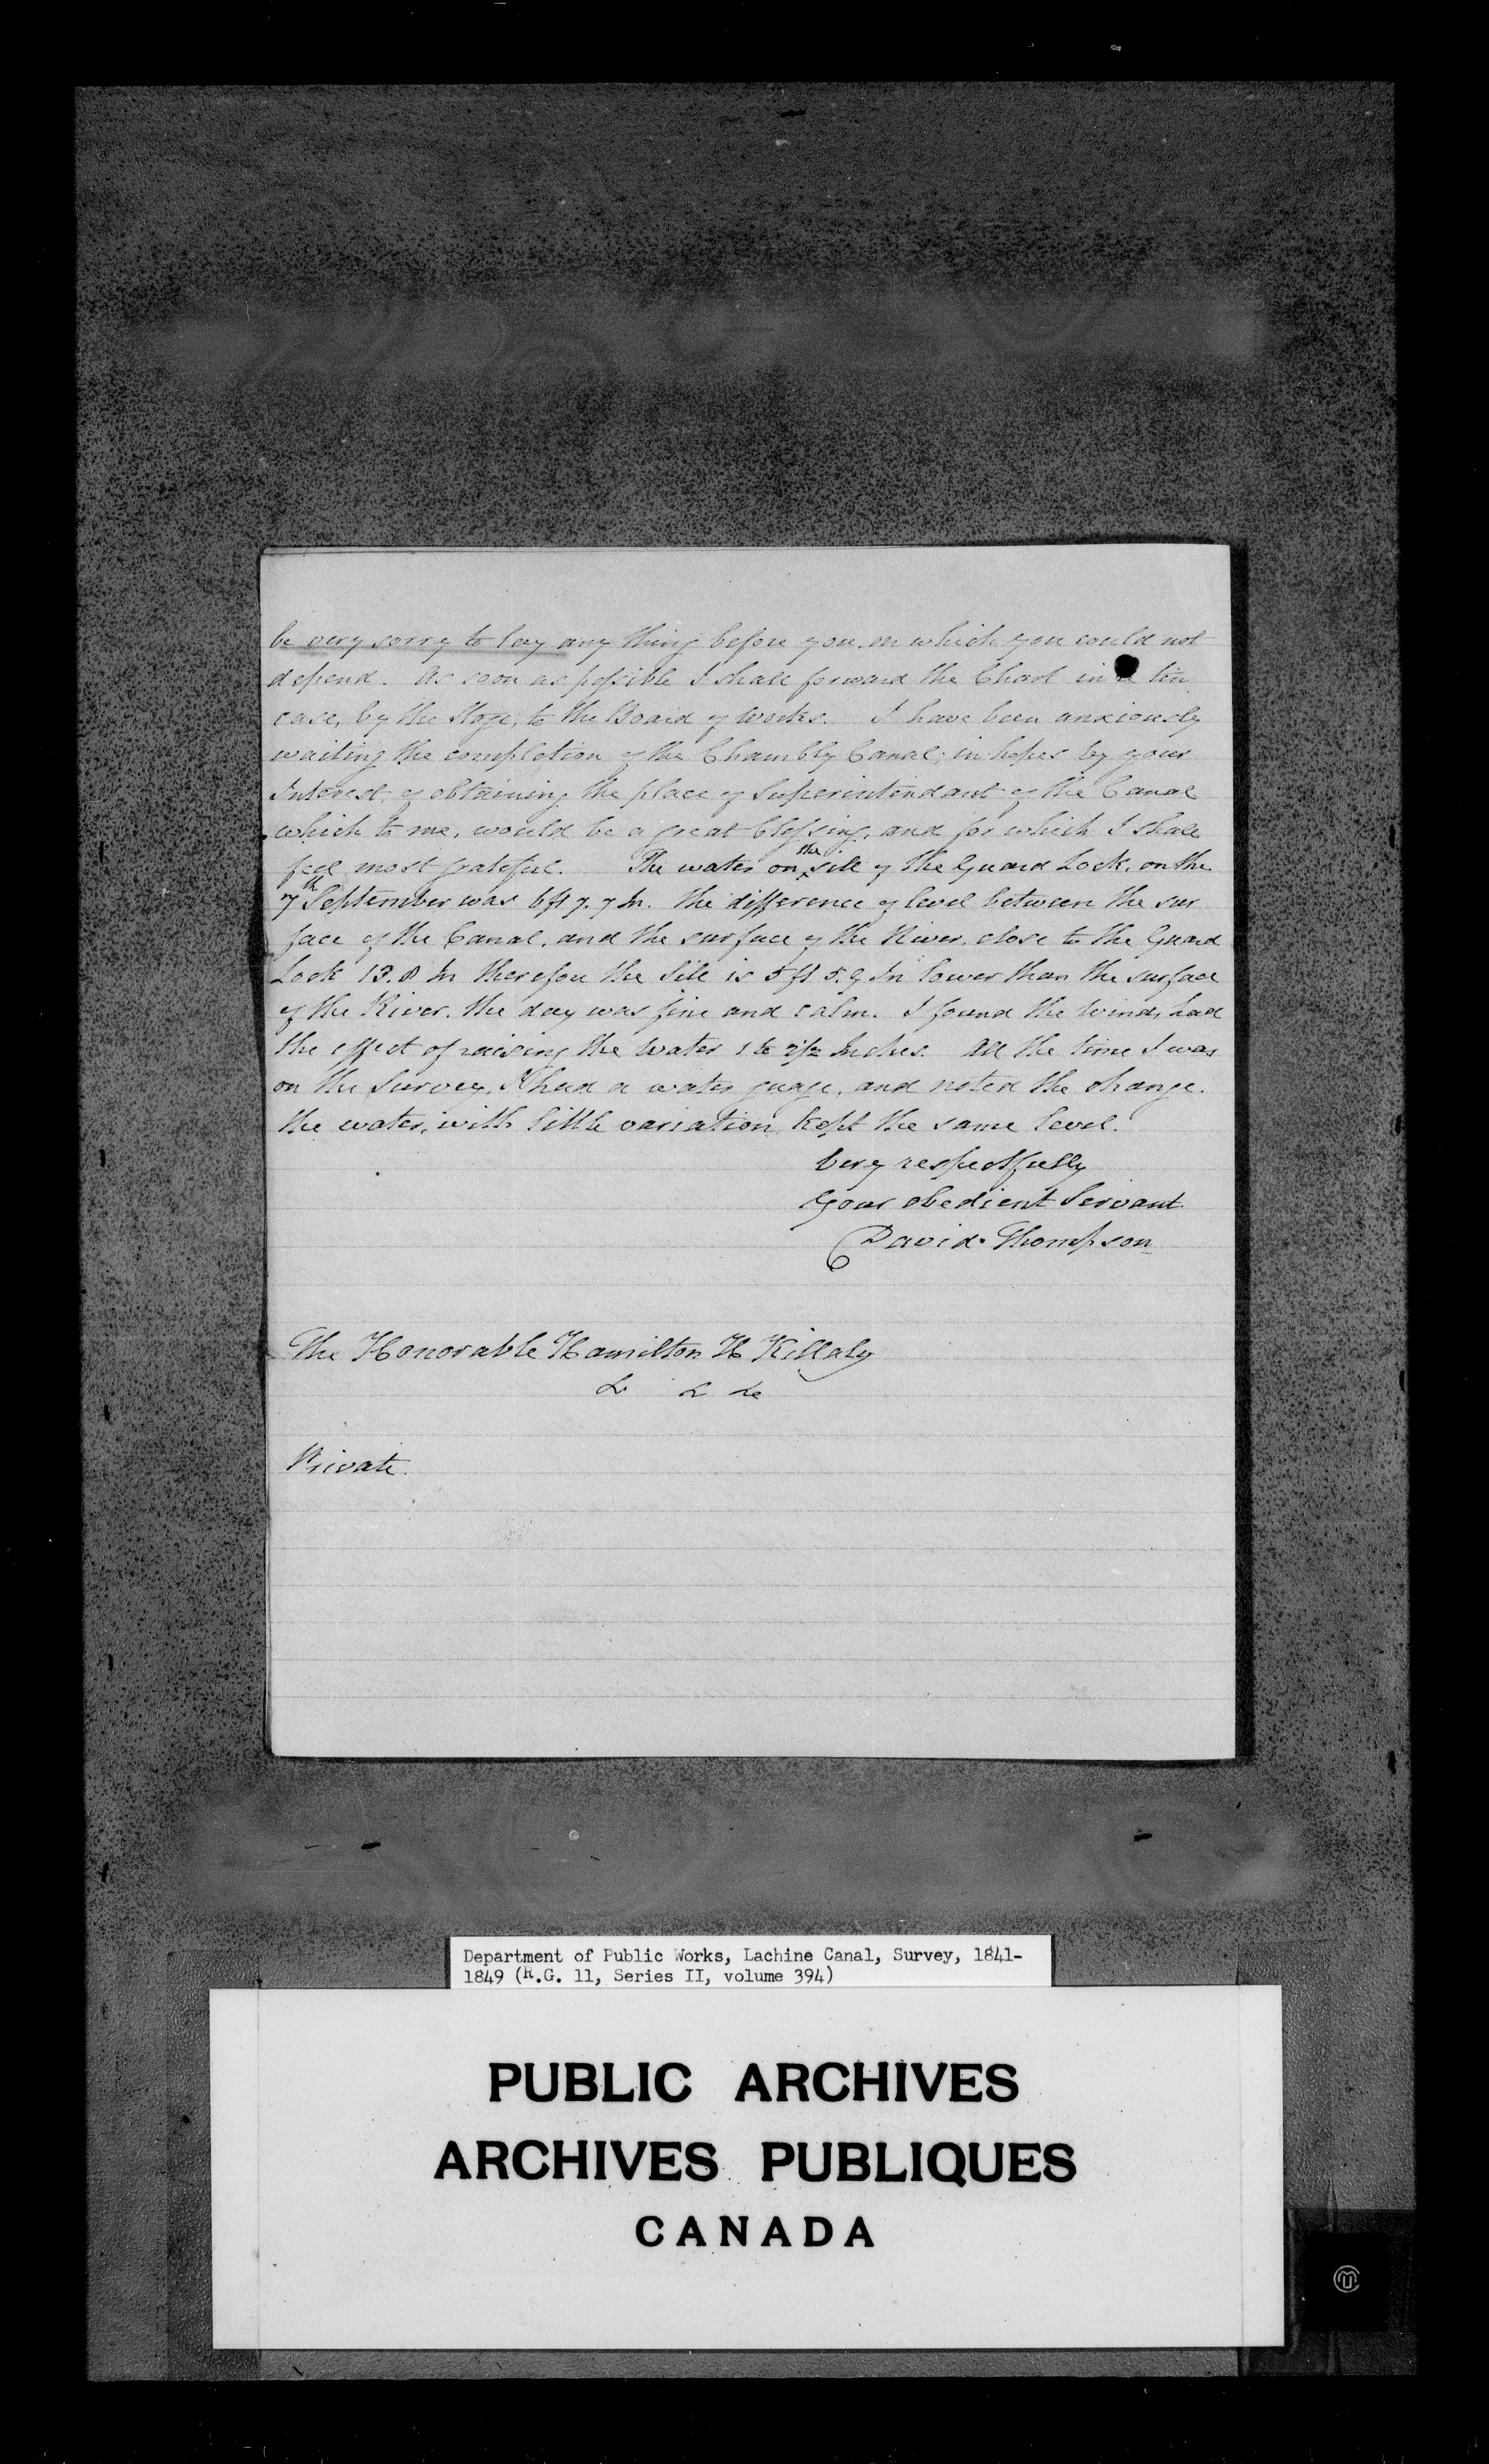 be very sorry to lay any thing before you, on which you could not
depend. As soon as possible I shall forward the Chart in a tin
case, by the Stage, to the Board of Works. I have been anxiously
waiting the completion of the Chambly Canal; in hopes by your
Interest, of obtaining the place of Superintendant of the Canal
which to me, would be a great blessing, and for which I shall
feel most grateful. The water on the sill of the Guard Lock, on the
7th September was 6ft 7.7 In. the difference of level between the sur
face of the Canal, and the surface of the River, close to the Guard
Lock 13.8 In therefore the Sill is 5 ft 5.9 In lower than the surface
of the River. the day was fine and calm. I found the Winds had
the effect of raising the Water 1 to 2 1/2 Inches. All the time I was
on the Survey, I had a water guage, and noted the change.
the water, with little variation, kept the same level.
Very respectfully
Your obedient Servant.
David Thompson
The Honorable Hamilton H Killaly
Private.
Department of Public Works, Lachine Canal, Survey, 1841-
1849 (R.G. 11, Series II, volume 394)
PUBLIC ARCHIVES
ARCHIVES PUBLIQUES
CANADA